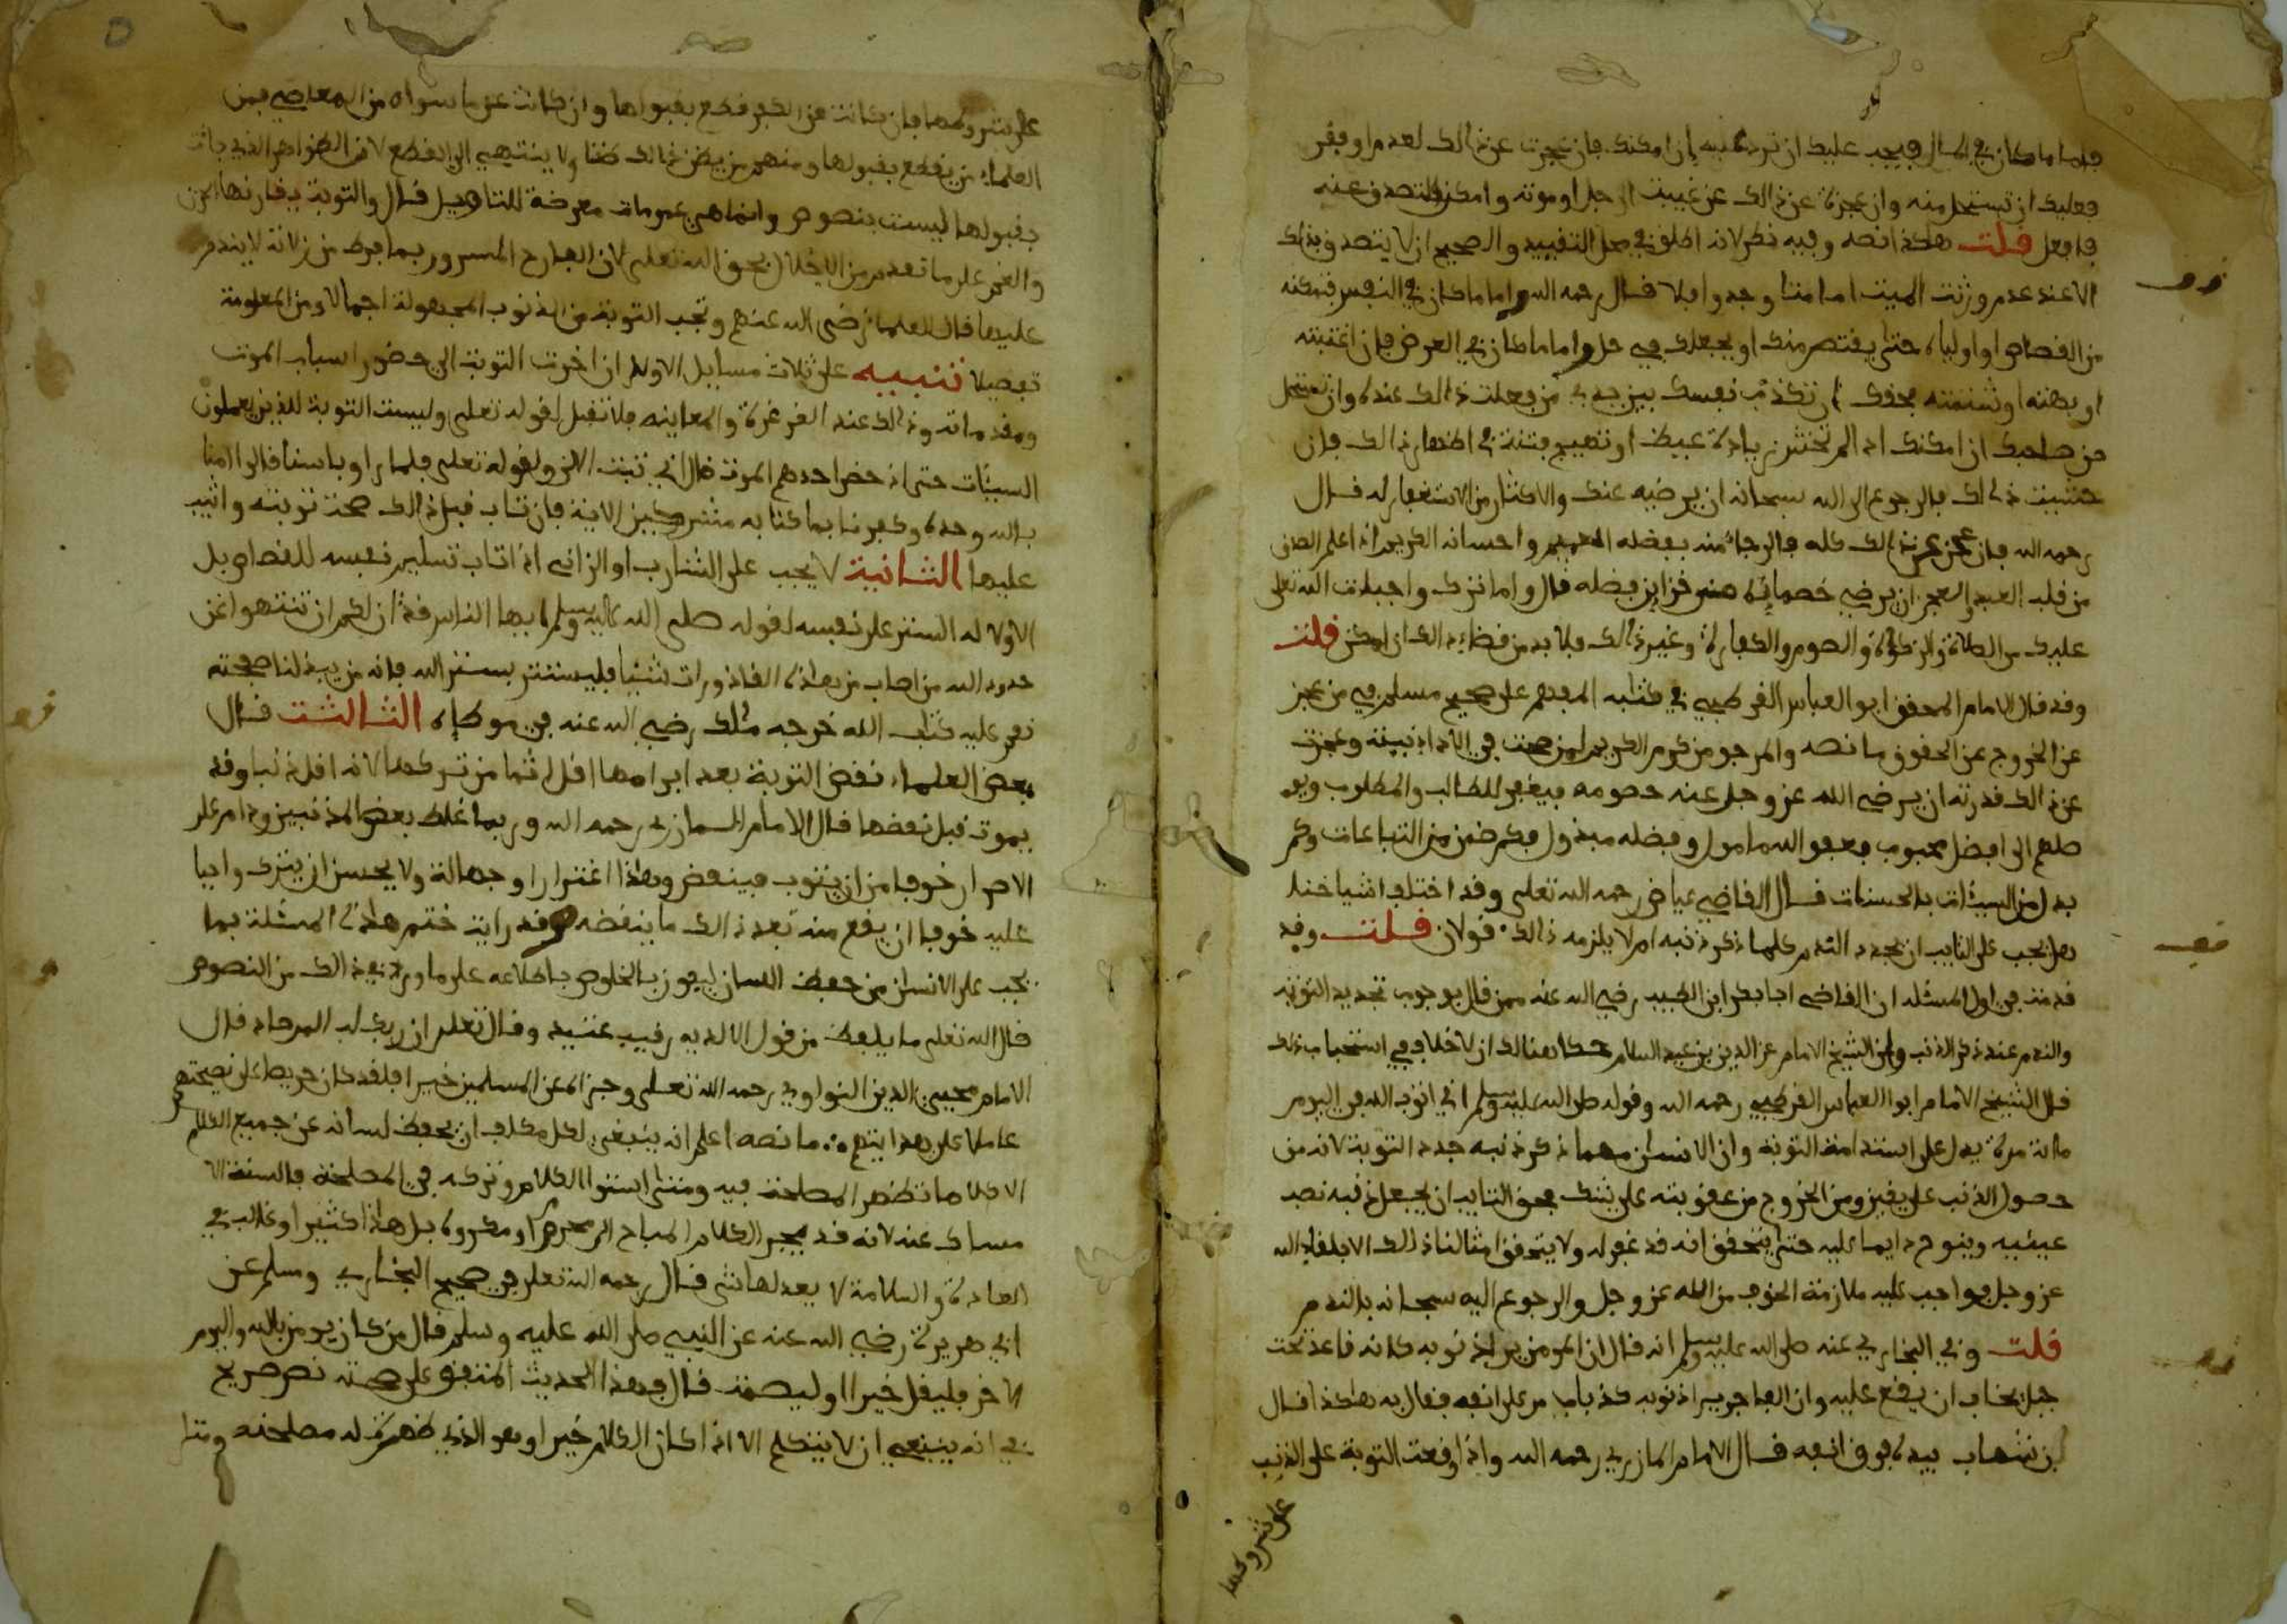 فاما ما كان في المال فيجب عليك ان ترده عليه ان امكنك فان عجزت عن ذالك لعدم او فقر
فعليك ان تستحل منه وان عجزت عن ذالك عن غيبت الرجل او موته وامكن التصدق عنه
فافعل قلت هكذا نصه وفيه نظر لانه اطلق في محل التقييد والصحيح ان لا يتصدق بذلك
الا عند عدم ورثت الميت اما متا وجدوا فلا قال رحمه الله واما ما كان في النفس فتمكنه
من القصاص او اولياه حتى يقتص منك او يجعلك في حل واما ما كان في العرض فان اغتبته
او بهته او شتمته فحقك ان تكذب نفسك بين يدي من فعلت ذالك عنده وان تستحل
من صاحبك ان امكنك اذا لم تخش زيادة غيظ او تهييج فتنة في اظهار ذالك فان
خشيت ذالك فالرجوع الى الله سبحانه ان يرضيه عنك والاكثار من الاستغفار له قال
رحمه الله فان عجز عن ذالك كله فالرجا منه بفضله العميم واحسانه الكريم اذا علم الصدق
من قلب العبد والعجز ان يرضي خصمائه من خزاين فضله قال واما ترك واجبات الله تعلى
عليك من الصلاة والزكوة والصوم والكفارة وغير ذالك فلا بد من قضاء ذالك ان امكن قلت
وقد قال الامام المحقق ابو العباس القرطبي في كتابه المفهم على صحيح مسلم في من عجز
عن الخروج عن الحقوق ما نصه والمرجو من كرم الكريم لمن صحت في الاداء نيته وعجزت
عن ذالك قدرته ان يرضي الله عز وجل عنه خصومه فيغفر للطالب والمطلوب ويو
صلهم الى افضل محبوب فعفو الله مامول وفضله مبذول فكم ضمن من التباعات وكم
بدل من السيئات بالحسنات قال القاضي عياض رحمه الله تعلى وقد اختلف اشياخنا
هل يجب على التايب ان يجدد الندم كلما ذكر ذنبه ام لا يلزمه ذالك قولان قلت وقد
قدمت في اول المسئله ان القاضي ابا بكر ابن الطيب رضي الله عنه ممن قال بوجوب تجديد التوبة
والندم عند ذكر الذنب وان الشيخ الامام عز الدين بن عبد السلام حكا هنالك ان لا خلاف في استحباب ذلك
قال الشيخ الامام ابوا العباس القرطبي رحمه الله وقوله صلى الله عليه وسلم اني اتوب الله في اليوم
مائة مرة يدل على استدامة التوبة وان الانسان مهما ذكر ذنبه جدد التوبة لانه من
حصول الذنب على يقين ومن الخروج من عقوبته على شك فحق التايب ان يجعل ذنبه نصب
عينيه وينوح دايما عليه حتى يتحقق انه قد غفر له ولا يتحقق امثالنا ذالك الا بلقاء الله
عز وجل فواجب عليه ملازمة الخوف من الله عز وجل والرجوع اليه سبحانه بالندم
قلت وفي البخاري عنه صلى الله عليه وسلم انه قال ان المومن يرا ذنوبه كانه قاعد تحت
جبل يخاف ان يقع عليه وان الفاجر يرا ذنوبه كذباب مر على انفه فقال به هكذا قال
ابن شهاب بيده فوق انفه قال الامام المازري رحمه الله واذا وقعت التوبة على الذنب
على شروطها
على شروطها فان كانت من الكفر قطع بقبولها وان كانت عن ما سواه من المعاصي فمن
العلماء من يقطع بقبولها ومنهم من يظن ذالك ظنا ولا ينتهي الى القطع لان الظواهر التي جات
بقبولها ليست بنصوص وانما هي عمومات معرضة للتاويل قال والتوبة يقارنها الحزن
والغم على ما تقدم من الاخلال بحق الله تعلى لان الفارح المسرور بما فرط من زلاته لا يندم
عليها قال العلماء رضي الله عنهم وتجب التوبة من الذنوب المجهولة اجمالا ومن المعلومة
تفصيلا تنبيه على ثلاث مسايل الاولى ان اخرت التوبة الى حضور اسباب الموت
ومقدماته وذالك عند الغرغرة والمعاينه فلا تقبل لقوله تعلى وليست التوبة للذين يعملون
السيئات حتى اذ حضر احدهم الموت قال اني تبت الان ولقوله تعلى فلما راو باسنا قالوا امنا
بالله وحده وكفرنا بما كنا به مشركين الاية فان تاب قبل ذالك صحت توبته واثيب
عليها الثانية لا يجب على الشارب او الزاني اذا تاب تسليم نفسه للقصاص بل
الاولا له الستر على نفسه لقوله صلى الله عليه وسلم ايها الناس قد ان لكم ان تنتهوا عن
حدود الله من اصاب من هاذه القاذورات شيئا فليستتر بستر الله فانه من يبد لنا صفحته
نقم عليه كتاب الله خرجه ملك رضي الله عنه في موطاه الثالثة قال
بعض العلماء نقض التوبة بعد ابرامها اقل اثما من تركها لانه اقل ذنبا وقد
يموت قبل نقضها قال الامام المازري رحمه الله وربما غلط بعض المذنبين ودام على
الاصرار خوفا من ان يتوب فينقض وهذا اغترارا وجهالة ولا يحسن ان يترك واجبا
عليه خوفا ان يقع منه بعد ذالك ما ينقضه وقد رايت ختم هاذه المسئلة بما
يجب على الانسان من حفظ اللسان ليفوز بالخلوص باطلاعه على ما ورد في ذالك من النصوص
قال الله تعلى ما يلفظ من قول الا لديه رقيب عتيد وقال تعلى ان ربك لبالمرصاد قال
الامام محيي الدين النواوي رحمه الله تعلى وجزاه عن المسلمين خيرا فلقد كان حريصا على نصيحتهم
عاملا على هدايتهم ما نصه اعلم انه ينبغي لكل مكلف ان يحفظ لسانه عن جميع الكلام
الا كلاما تظهر المصلحة فيه ومتى استوا الكلام وتركه في المصلحة فالسنة الا
مساك عنه لانه قد يجر الكلام المباح الى محرم او مكروه بل هاذا كثير او غالب في
العادة والسلامة لا يعدلها شي قال رحمه الله تعلى في صحيح البخاري ومسلم عن
ابي هريرة رضي الله عنه عن النبي صلى الله عليه وسلم قال من كان يومن بالله واليوم
الاخر فليقل خيرا او ليصمت قال فهذا الحديث المتفق على صحته نص صريح
في انه ينبغي ان لا يتكلم الا اذا كان الكلام خيرا وهو الذي ظهرت له مصلحته ومتا